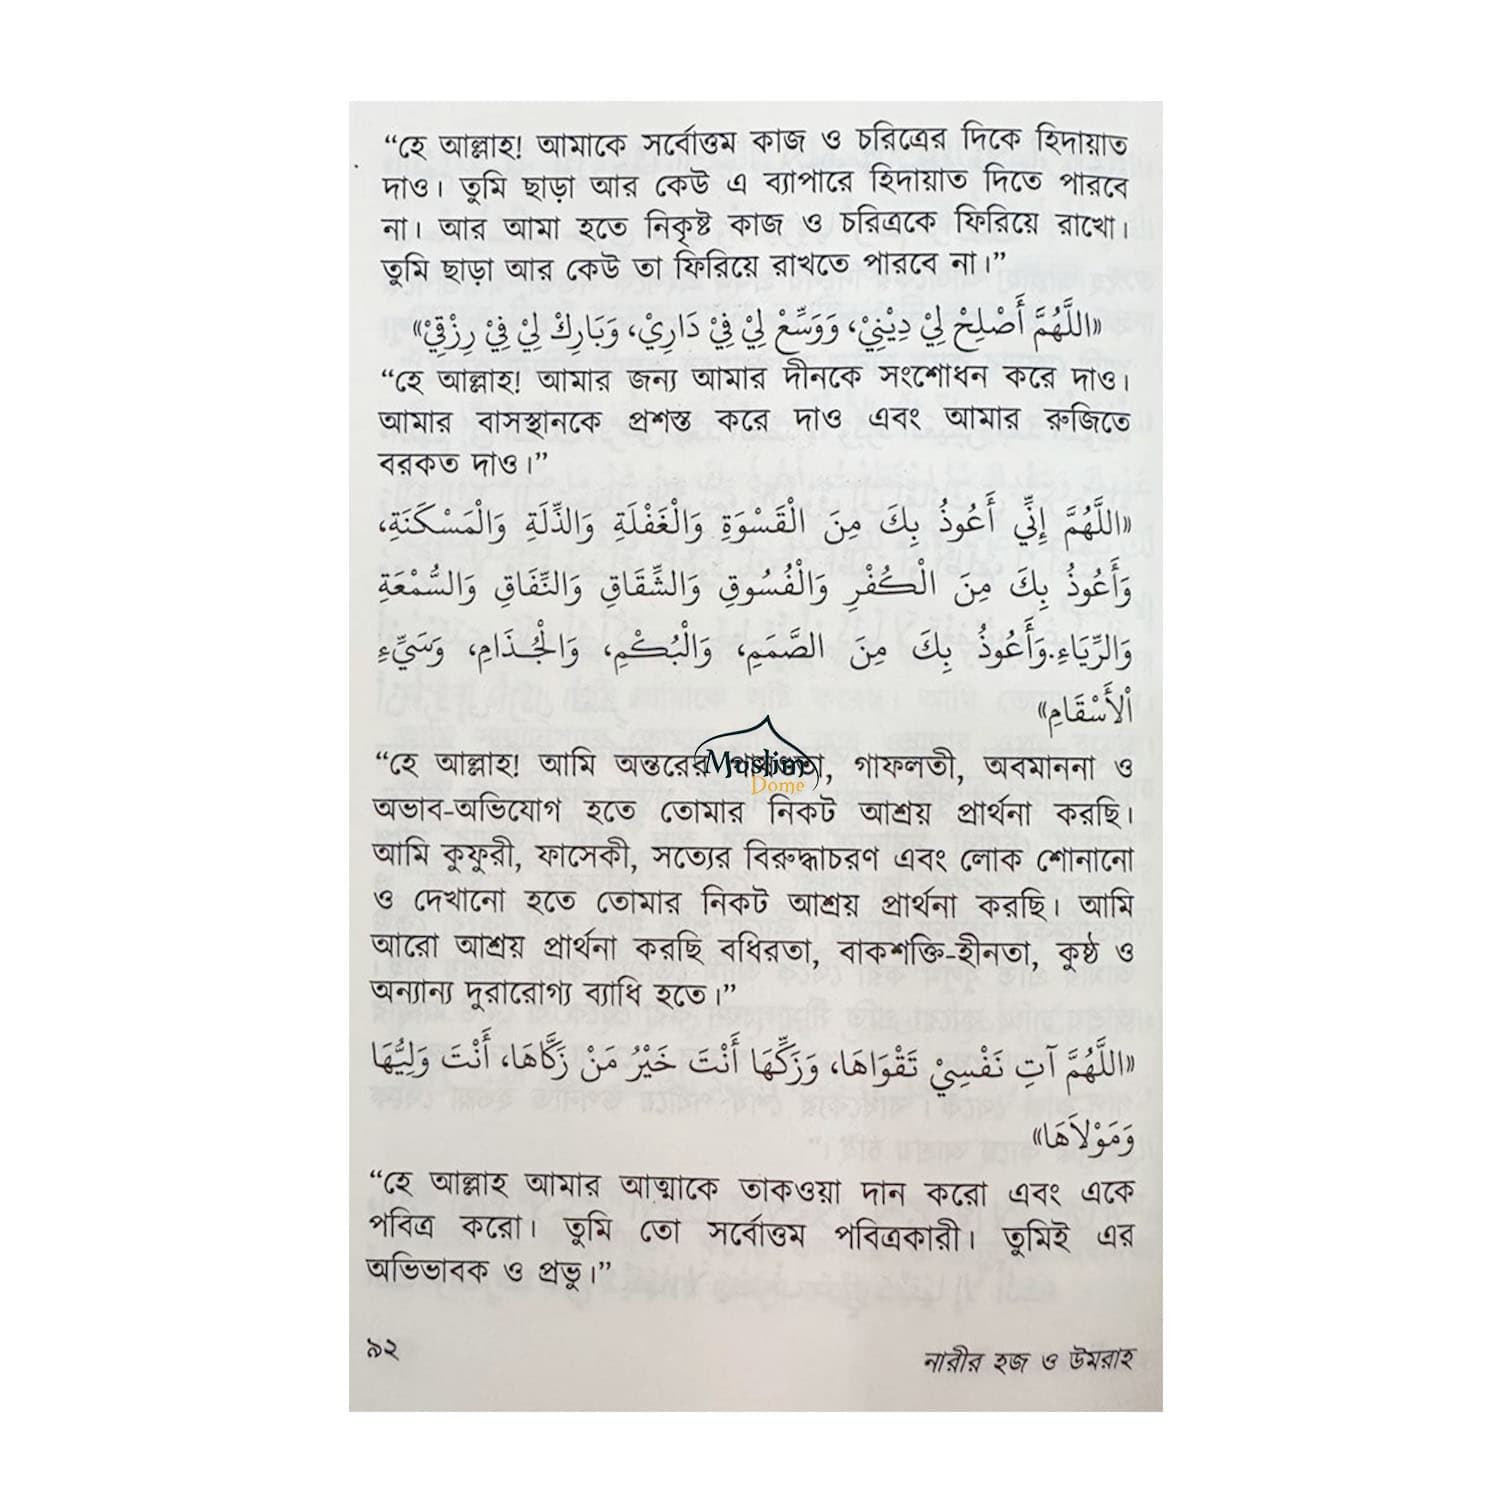 “হে আল্লাহ! আমাকে সর্বোত্তম কাজ ও চরিত্রের দিকে হিদায়াত
দাও। তুমি ছাড়া আর কেউ এ ব্যাপারে হিদায়াত দিতে পারবে
না। আর আমা হতে নিকৃষ্ট কাজ ও চরিত্রকে ফিরিয়ে রাখো।
তুমি ছাড়া আর কেউ তা ফিরিয়ে রাখতে পারবে না।”
«اللَّهُمَّ أَصْلِحْ لِيْ دِيْنِيْ، وَوَسِّعْ لِيْ فِيْ دَارِيْ، وَبَارِكْ لِيْ فِيْ رِزْقِيْ»
“হে আল্লাহ! আমার জন্য আমার দীনকে সংশোধন করে দাও।
আমার বাসস্থানকে প্রশস্ত করে দাও এবং আমার রুজিতে
বরকত দাও।”
«اللَّهُمَّ إِنِّي أَعُوذُ بِكَ مِنَ الْقَسْوَةِ وَالْغَفْلَةِ وَالذِّلَةِ وَالْمَسْكَنَةِ،
وَأَعُوذُ بِكَ مِنَ الْكُفْرِ وَالْفُسُوقِ وَالشِّقَاقِ وَالنِّفَاقِ وَالسُّمْعَةِ
وَالرِّيَاءِ.وَأَعُوذُ بِكَ مِنَ الصَّمَمِ، وَالْبُكْمِ، وَالْجُذَامِ، وَسَيِّءِ
اْلأَسْقَامِ»
Muslim
Dome
“হে আল্লাহ! আমি অন্তরের গাফলতী, অবমাননা ও
অভাব-অভিযোগ হতে তোমার নিকট আশ্রয় প্রার্থনা করছি।
আমি কুফুরী, ফাসেকী, সত্যের বিরুদ্ধাচরণ এবং লোক শোনানো
ও দেখানো হতে তোমার নিকট আশ্রয় প্রার্থনা করছি। আমি
আরো আশ্রয় প্রার্থনা করছি বধিরতা, বাকশক্তি-হীনতা, কুষ্ঠ ও
অন্যান্য দুরারোগ্য ব্যাধি হতে।”
«اللَّهُمَّ آتِ نَفْسِيْ تَقْوَاهَا، وَزَكِّهَا أَنْتَ خَيْرُ مَنْ زَكَّاهَا، أَنْتَ وَلِيُّهَا
وَمَوْلاَهَا»
“হে আল্লাহ আমার আত্মাকে তাকওয়া দান করো এবং একে
পবিত্র করো। তুমি তো সর্বোত্তম পবিত্রকারী। তুমিই এর
অভিভাবক ও প্রভু।”
৯২
নারীর হজ ও উমরাহ